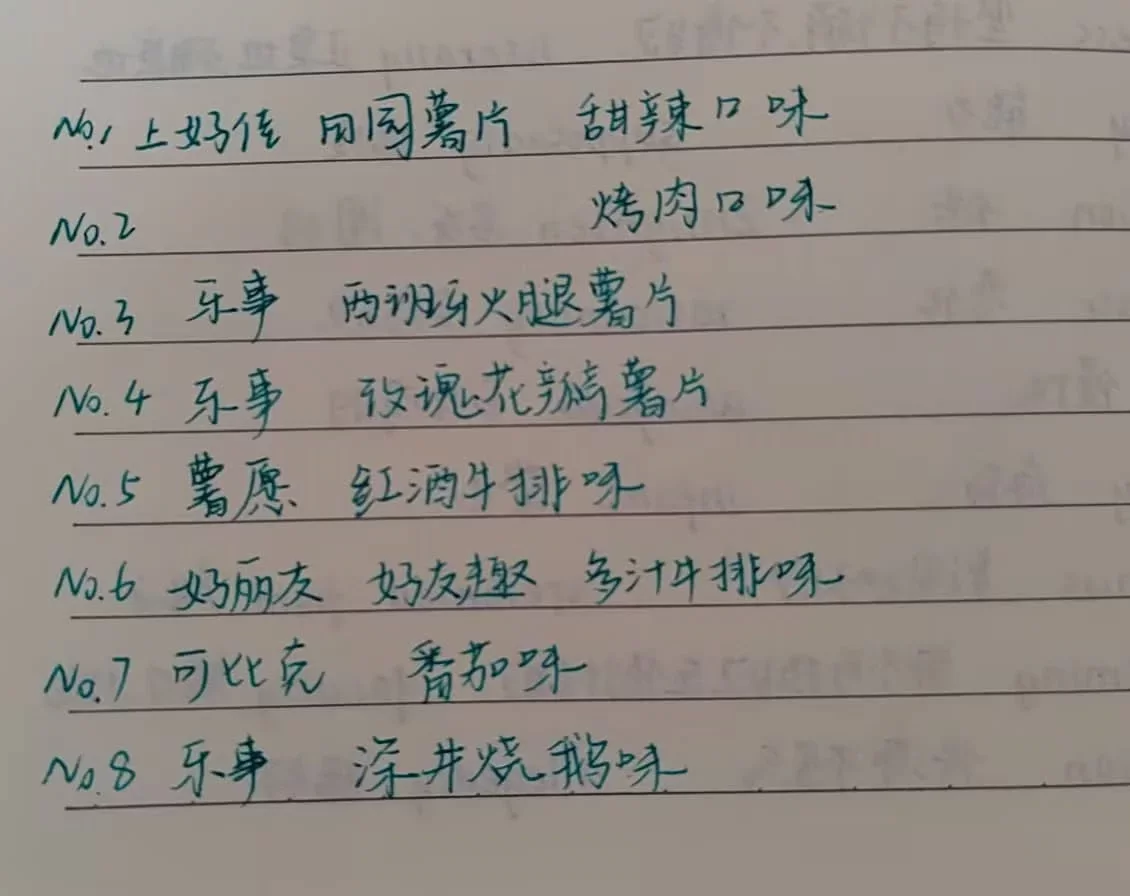 No.1 上好佳 田园薯片 甜辣口味
No.2 烤肉口味
No.3 乐事 西班牙火腿薯片
No.4 乐事 玫瑰花瓣薯片
No.5 薯愿 红酒牛排味
No.6 好丽友 好友趣 多汁牛排味
No.7 可比克 番茄味
No.8 乐事 深井烧鹅味